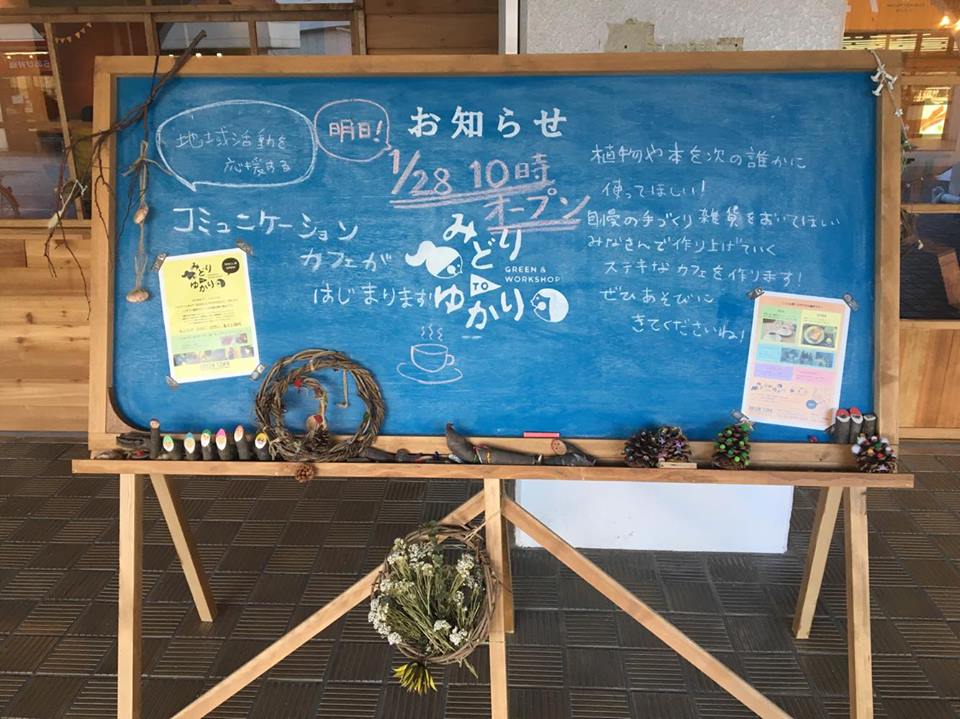 お知らせ
地域活動を
応援する
明日!
1/28 10時
オープン
コミュニケーション
カフェが
はじまります
みどり
TO
ゆかり
GREEN &
WORKSHOP
植物や本を次の誰かに
使ってほしい!
自慢の手づくり雑貨をおいてほしい
みなさんで作り上げていく
ステキなカフェを作ります!
ぜひあそびに
きてくださいね!
みどり
TO
ゆかり